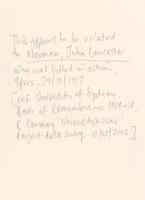 This appears to be related
to Norman, John Lancaster
who was killed in action,
Ypres, 29/09/1917
[ref. University of Sydney,
Book of Remembrance 1914-18,
& Conway 'University@War'
Project data entry 12/05/2015]